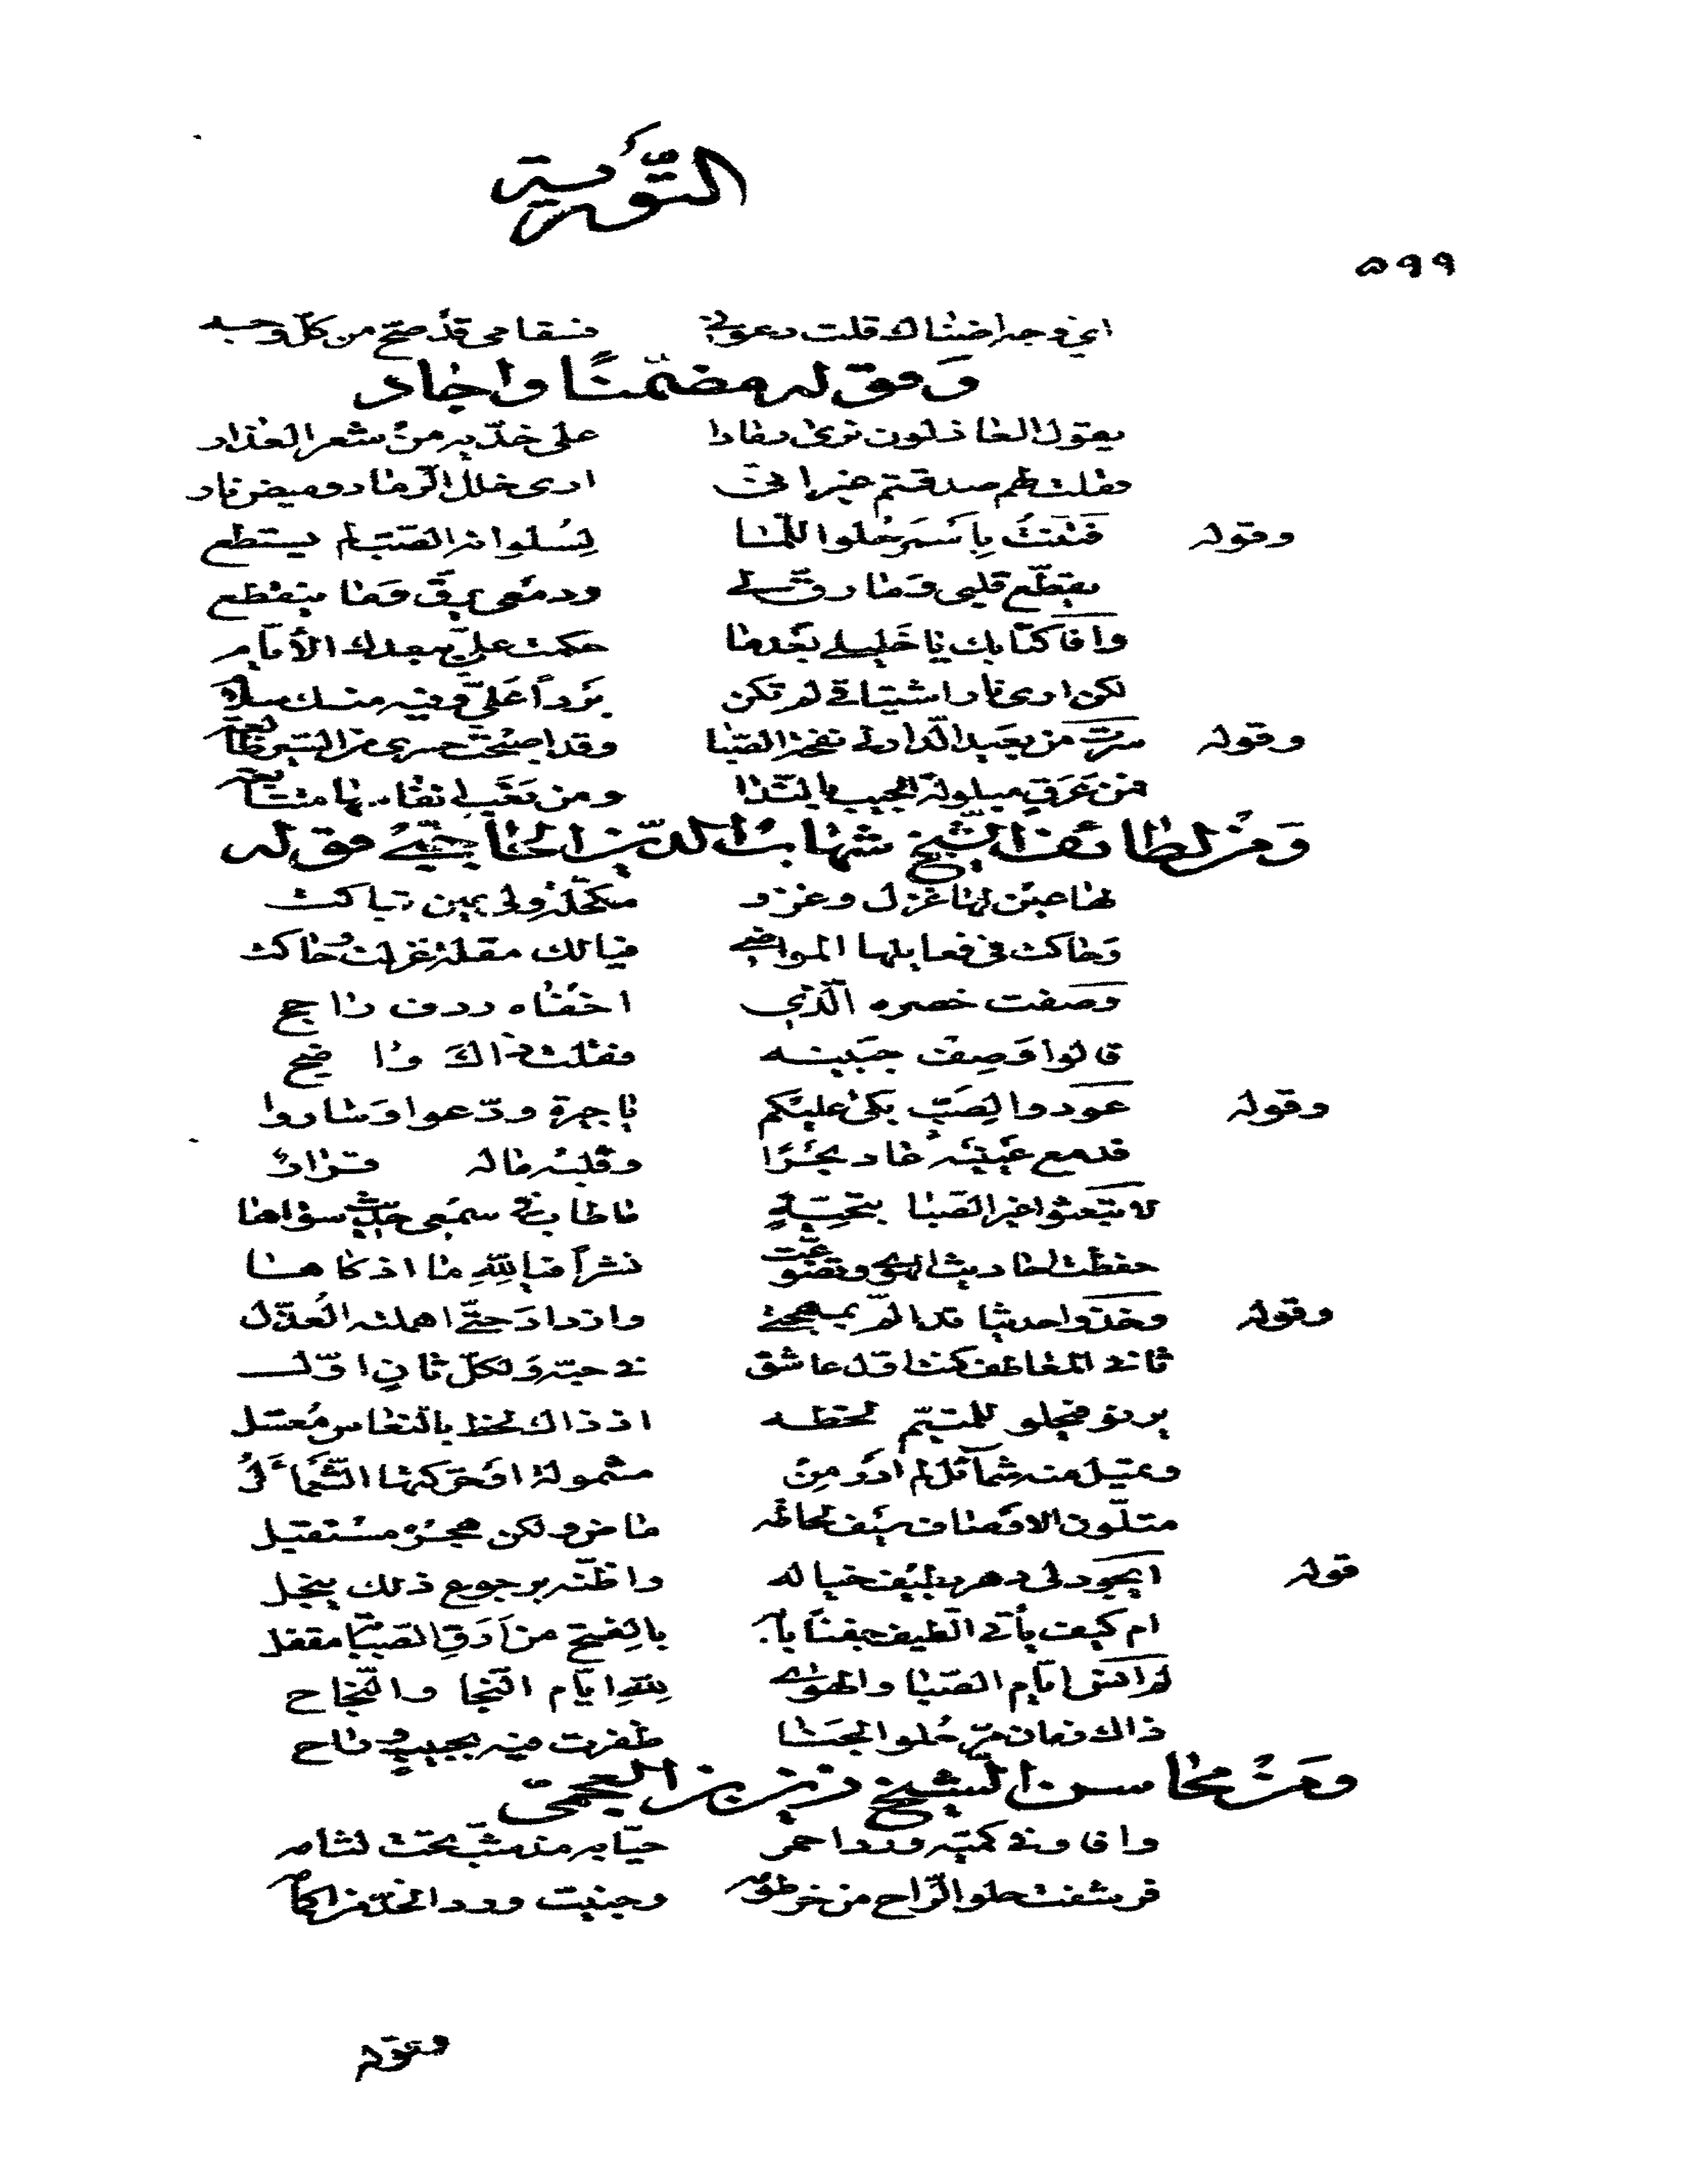 التّورية
٥٩٩
اي وجه اضناك قلت دعوني فسقامي قد صحّ من كلّ وجه
وقوله مضمّنًا واجاد
يقول العاذلون نرى رمادا على خدّيه من شعر العذار
فقلت لهم صدقتم غير انّي ارى خلل الرّماد وميض نار
وقوله فتنت باسمر حلو اللّما لسلوانه الصّبّ لم يستطع
يقطّع قلبي وما رقّ لي ودمعي يرقّ وما ينقطع
وافا كتابك يا خليلي بعدما حكمت عليّ ببعدك الأيّام
لكن ارى نار اشتياقي لم تكن بردًا عليّ وفيه منك سلام
وقوله سرت من بعيد الدّار لي نفحة الصّبا وقد اصبحت حسرى من السّير
من عرق مبلولة الجيب بالنّدا ومن تعب انفاسها
ومن لطائف الشّيخ شهاب الدّين الحاجبيّ قوله
لها عين لها غزل وغزو مكحّلة ولي عين تباكت
وحاكت في فعايلها المواضي فيا لك مقلة غزلت وحاكت
وصفت خصره الّذي اخفاه ردف راجح
قالوا وصف جبينه فقلت ذاك واضح
وقوله عودوا لصبّ بكى عليكم يا جيرة ودّعوا وساروا
فدمع عينيه عاد بحرًا وقلبه ماله قرار
لا تبعثوا غير الصّبا بتحيّة ما طاب في سمعي حديث سواها
حفظت احاديث الهوى وتضوّعت نشرًا فيا للّه ما اذكاها
وقوله وخذوا حديثا وازداد حتّى اهملته العذّل
ثاني المعاطف كنت اوّل عاشق في حبّه ولكلّ ثان اوّل
يرنو فيحلو للمتيّم لحظه اذ ذاك لحظ بالنّعاس معسّل
وتميل منه شمائل لم ادر من مشمولة او حرّكتها الشّمأل
متلوّن الاوصاف سيف لحاظه ماض ولكن هجره مستقبل
قوله ايجود لي دهر بطيف خياله واظنّه برجوع ذلك يبخل
ام كيف يأتي الطّيف جفنًا بابه بالفتح من ارق الصّبابة مقفل
لم انس ايّام الصّبا والهوى للّه ايّام النّجا والنّجاح
ذاك زمان مرّ حلو الجنا ظفرت فيه بحبيب وراح
ومن محاسن الشّيخ العجميّ
وافا وفي كمّيه ورد احمر حيّا به تحت لثامه
فرشفت حلو الرّاح من خرطومه وجنيت ورد الخدّ من اكمامه
وقوله